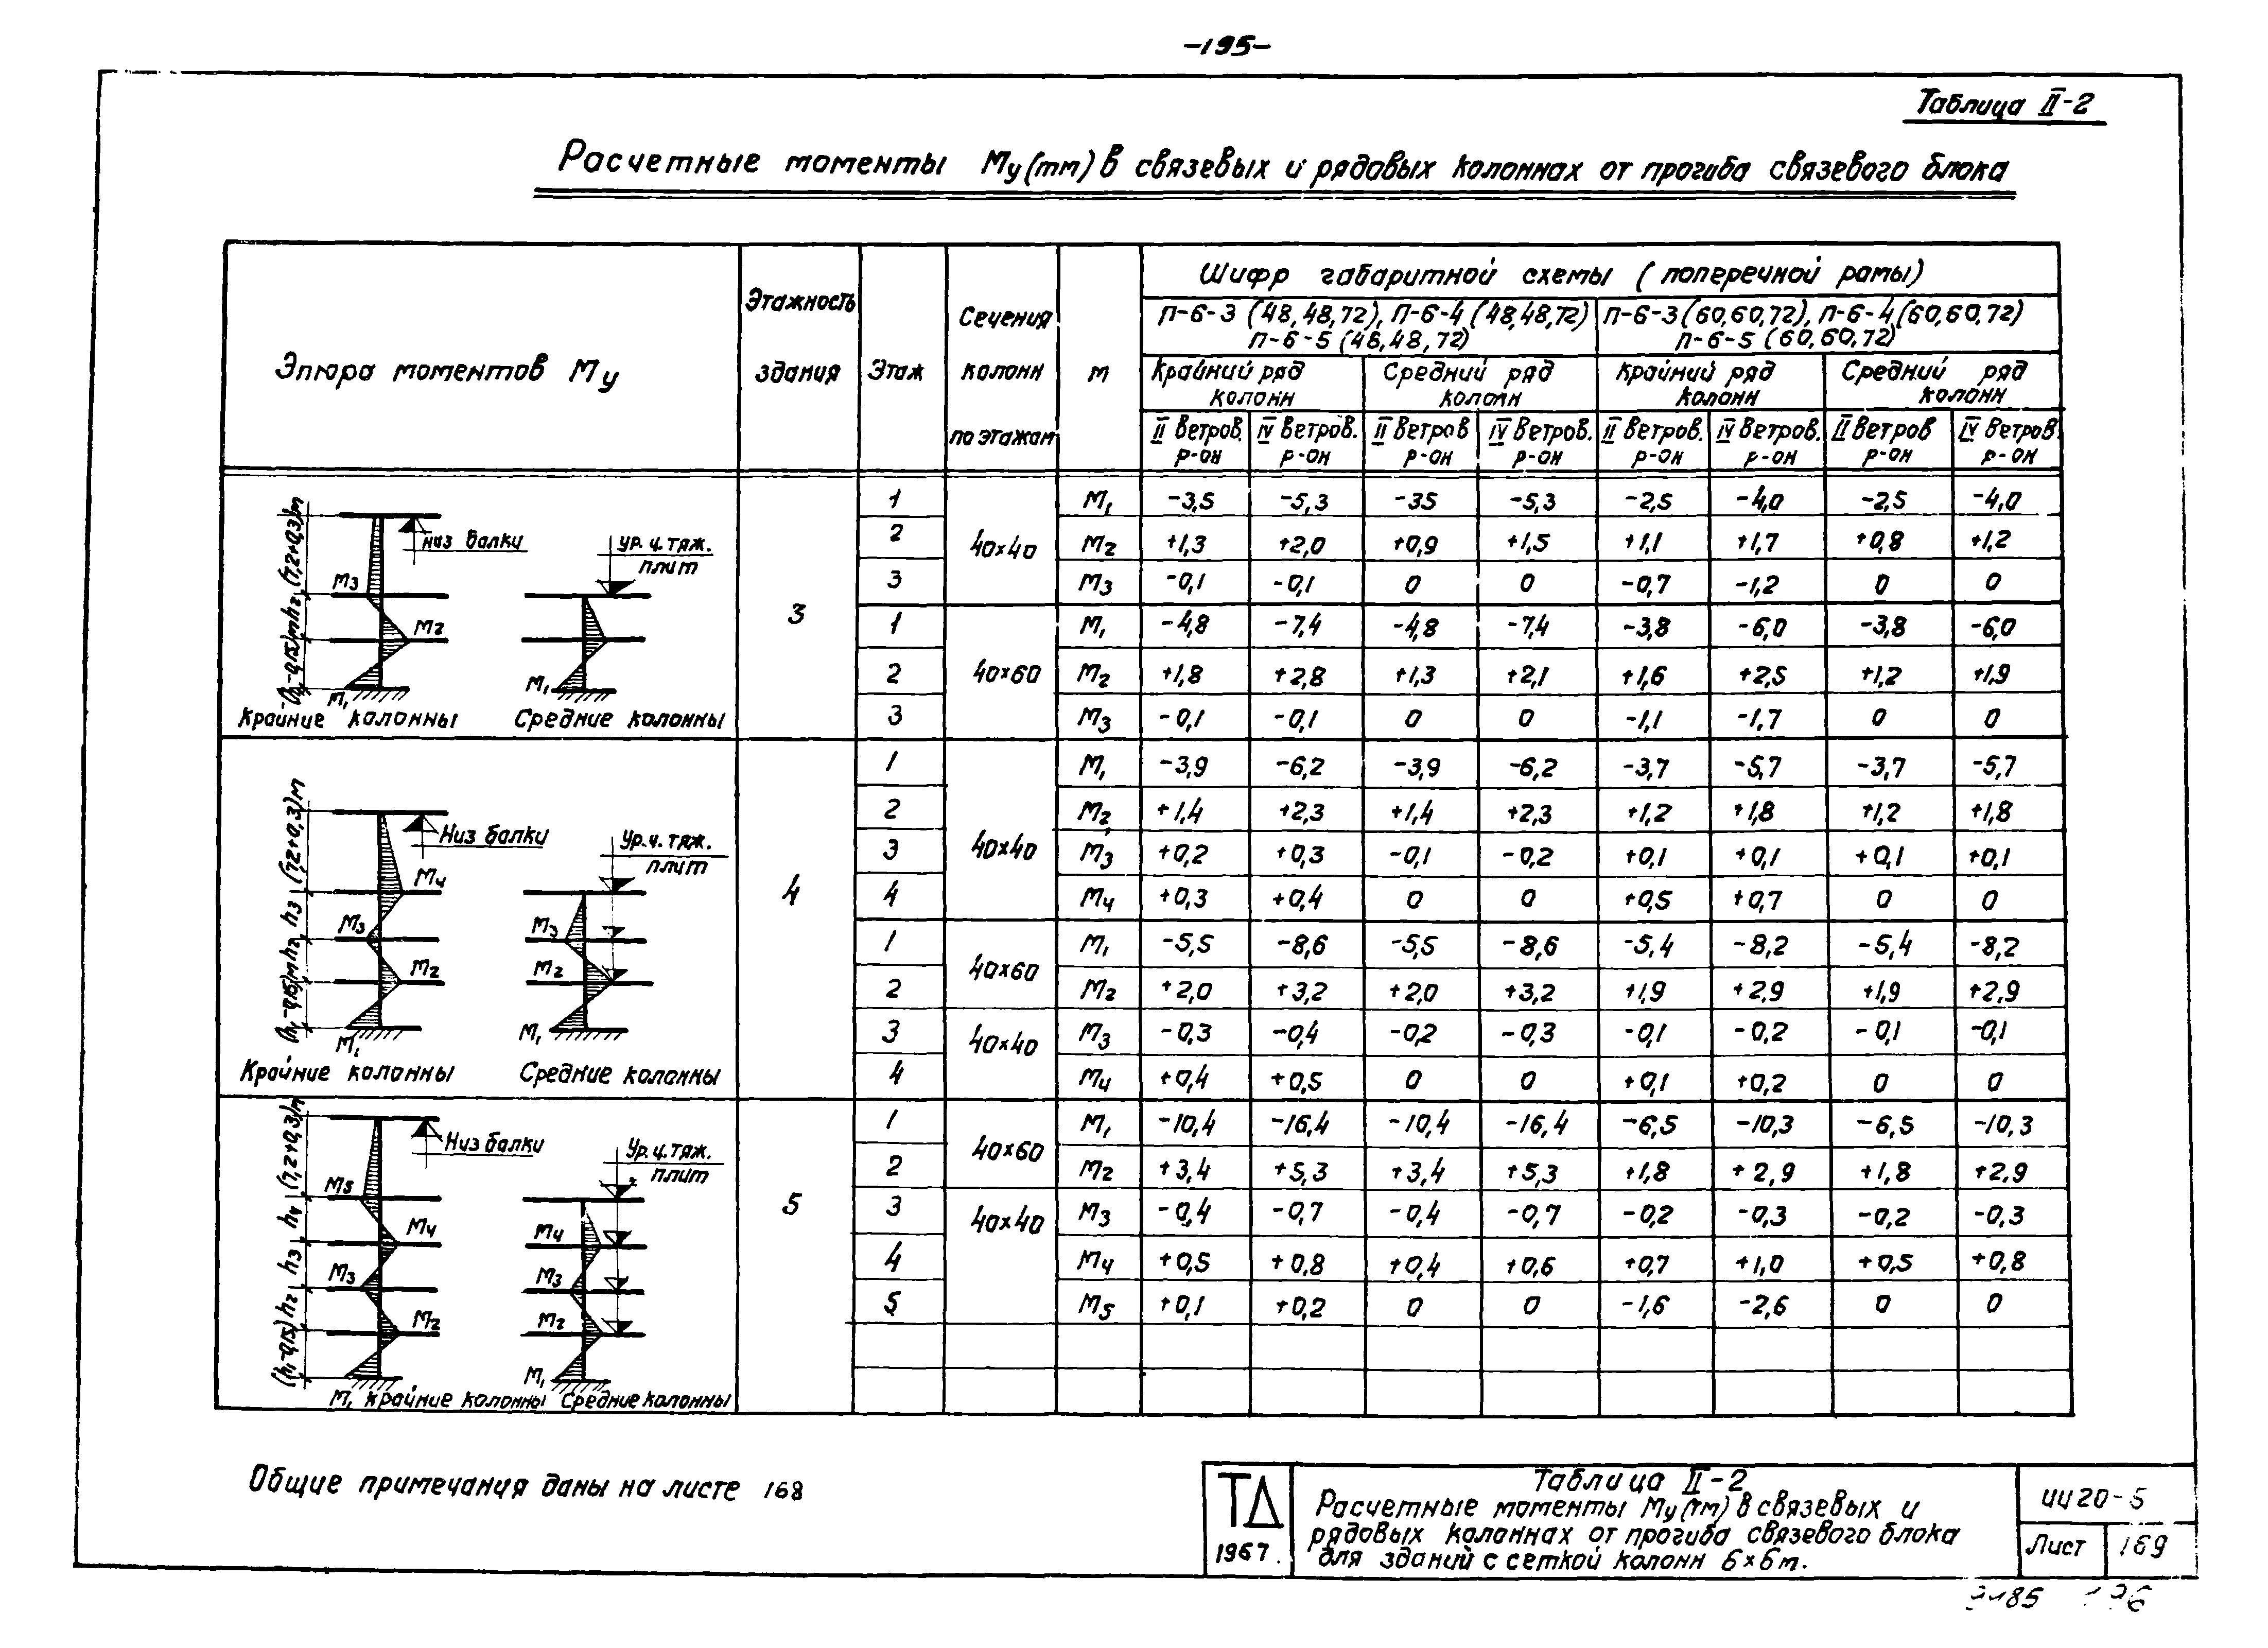 -195-
Таблица II-2
Расчетные моменты Му(тм) в связевых и рядовых колоннах от прогиба связевого блока
Эпюра моментов Му
Этажность здания
Этаж
Сечения колонн по этажам
М
Шифр габаритной схемы (поперечной рамы)
П-6-3 (48,48,72), П-6-4 (48,48,72) П-6-3 (60,60,72), П-6-4 (60,60,72)
П-6-5 (48,48,72) П-6-5 (60,60,72)
Крайний ряд Средний ряд Крайний ряд Средний ряд
колонн колонн колонн колонн
II Ветров. IV Ветров. II Ветров IV Ветров. II Ветров. IV Ветров. II Ветров IV Ветров.
р-он р-он р-он р-он р-он р-он р-он р-он
3
40×40
1 М1 -3,5 -5,3 -35 -5,3 -2,5 -4,0 -2,5 -4,0
2 М2 +1,3 +2,0 +0,9 +1,5 +1,1 +1,7 +0,8 +1,2
3 М3 -0,1 -0,1 0 0 -0,7 -1,2 0 0
40×60
1 М1 -4,8 -7,4 -4,8 -7,4 -3,8 -6,0 -3,8 -6,0
2 М2 +1,8 +2,8 +1,3 +2,1 +1,6 +2,5 +1,2 +1,9
3 М3 -0,1 -0,1 0 0 -1,1 -1,7 0 0
(h1-0,15)м h2 (7,2+0,3)м
низ балки
ур. ч. тяж.
плит
М3
М2
М1
М1
Крайние колонны Средние колонны
4
40×40
1 М1 -3,9 -6,2 -3,9 -6,2 -3,7 -5,7 -3,7 -5,7
2 М2 +1,4 +2,3 +1,4 +2,3 +1,2 +1,8 +1,2 +1,8
3 М3 +0,2 +0,3 -0,1 -0,2 +0,1 +0,1 +0,1 +0,1
4 М4 +0,3 +0,4 0 0 +0,5 +0,7 0 0
40×60
1 М1 -5,5 -8,6 -5,5 -8,6 -5,4 -8,2 -5,4 -8,2
2 М2 +2,0 +3,2 +2,0 +3,2 +1,9 +2,9 +1,9 +2,9
40×40
3 М3 -0,3 -0,4 -0,2 -0,3 -0,1 -0,2 -0,1 -0,1
4 М4 +0,4 +0,5 0 0 +0,1 +0,2 0 0
(h1-0,15)м h2 h3 (7,2+0,3)м
Низ балки
Ур. ч. тяж.
плит
М4
М3 М3
М2 М2
М1 М1
Крайние колонны Средние колонны
5
40×60
1 М1 -10,4 -16,4 -10,4 -16,4 -6,5 -10,3 -6,5 -10,3
2 М2 +3,4 +5,3 +3,4 +5,3 +1,8 +2,9 +1,8 +2,9
40×40
3 М3 -0,4 -0,7 -0,4 -0,7 -0,2 -0,3 -0,2 -0,3
4 М4 +0,5 +0,8 +0,4 +0,6 +0,7 +1,0 +0,5 +0,8
5 М5 +0,1 +0,2 0 0 -1,6 -2,6 0 0
(h1-0,15) h2 h3 h4 (7,2+0,3)м
Низ балки
Ур. ч. тяж.
плит
М5
М4 М4
М3 М3
М2 М2
М1 М1
Крайние колонны Средние колонны
Общие примечания даны на листе 168
ТД
1967.
Таблица II-2
Расчетные моменты Му(тм) в связевых и
рядовых колоннах от прогиба связевого блока
для зданий с сеткой колонн 6×6м.
ИИ20-5
Лист 169